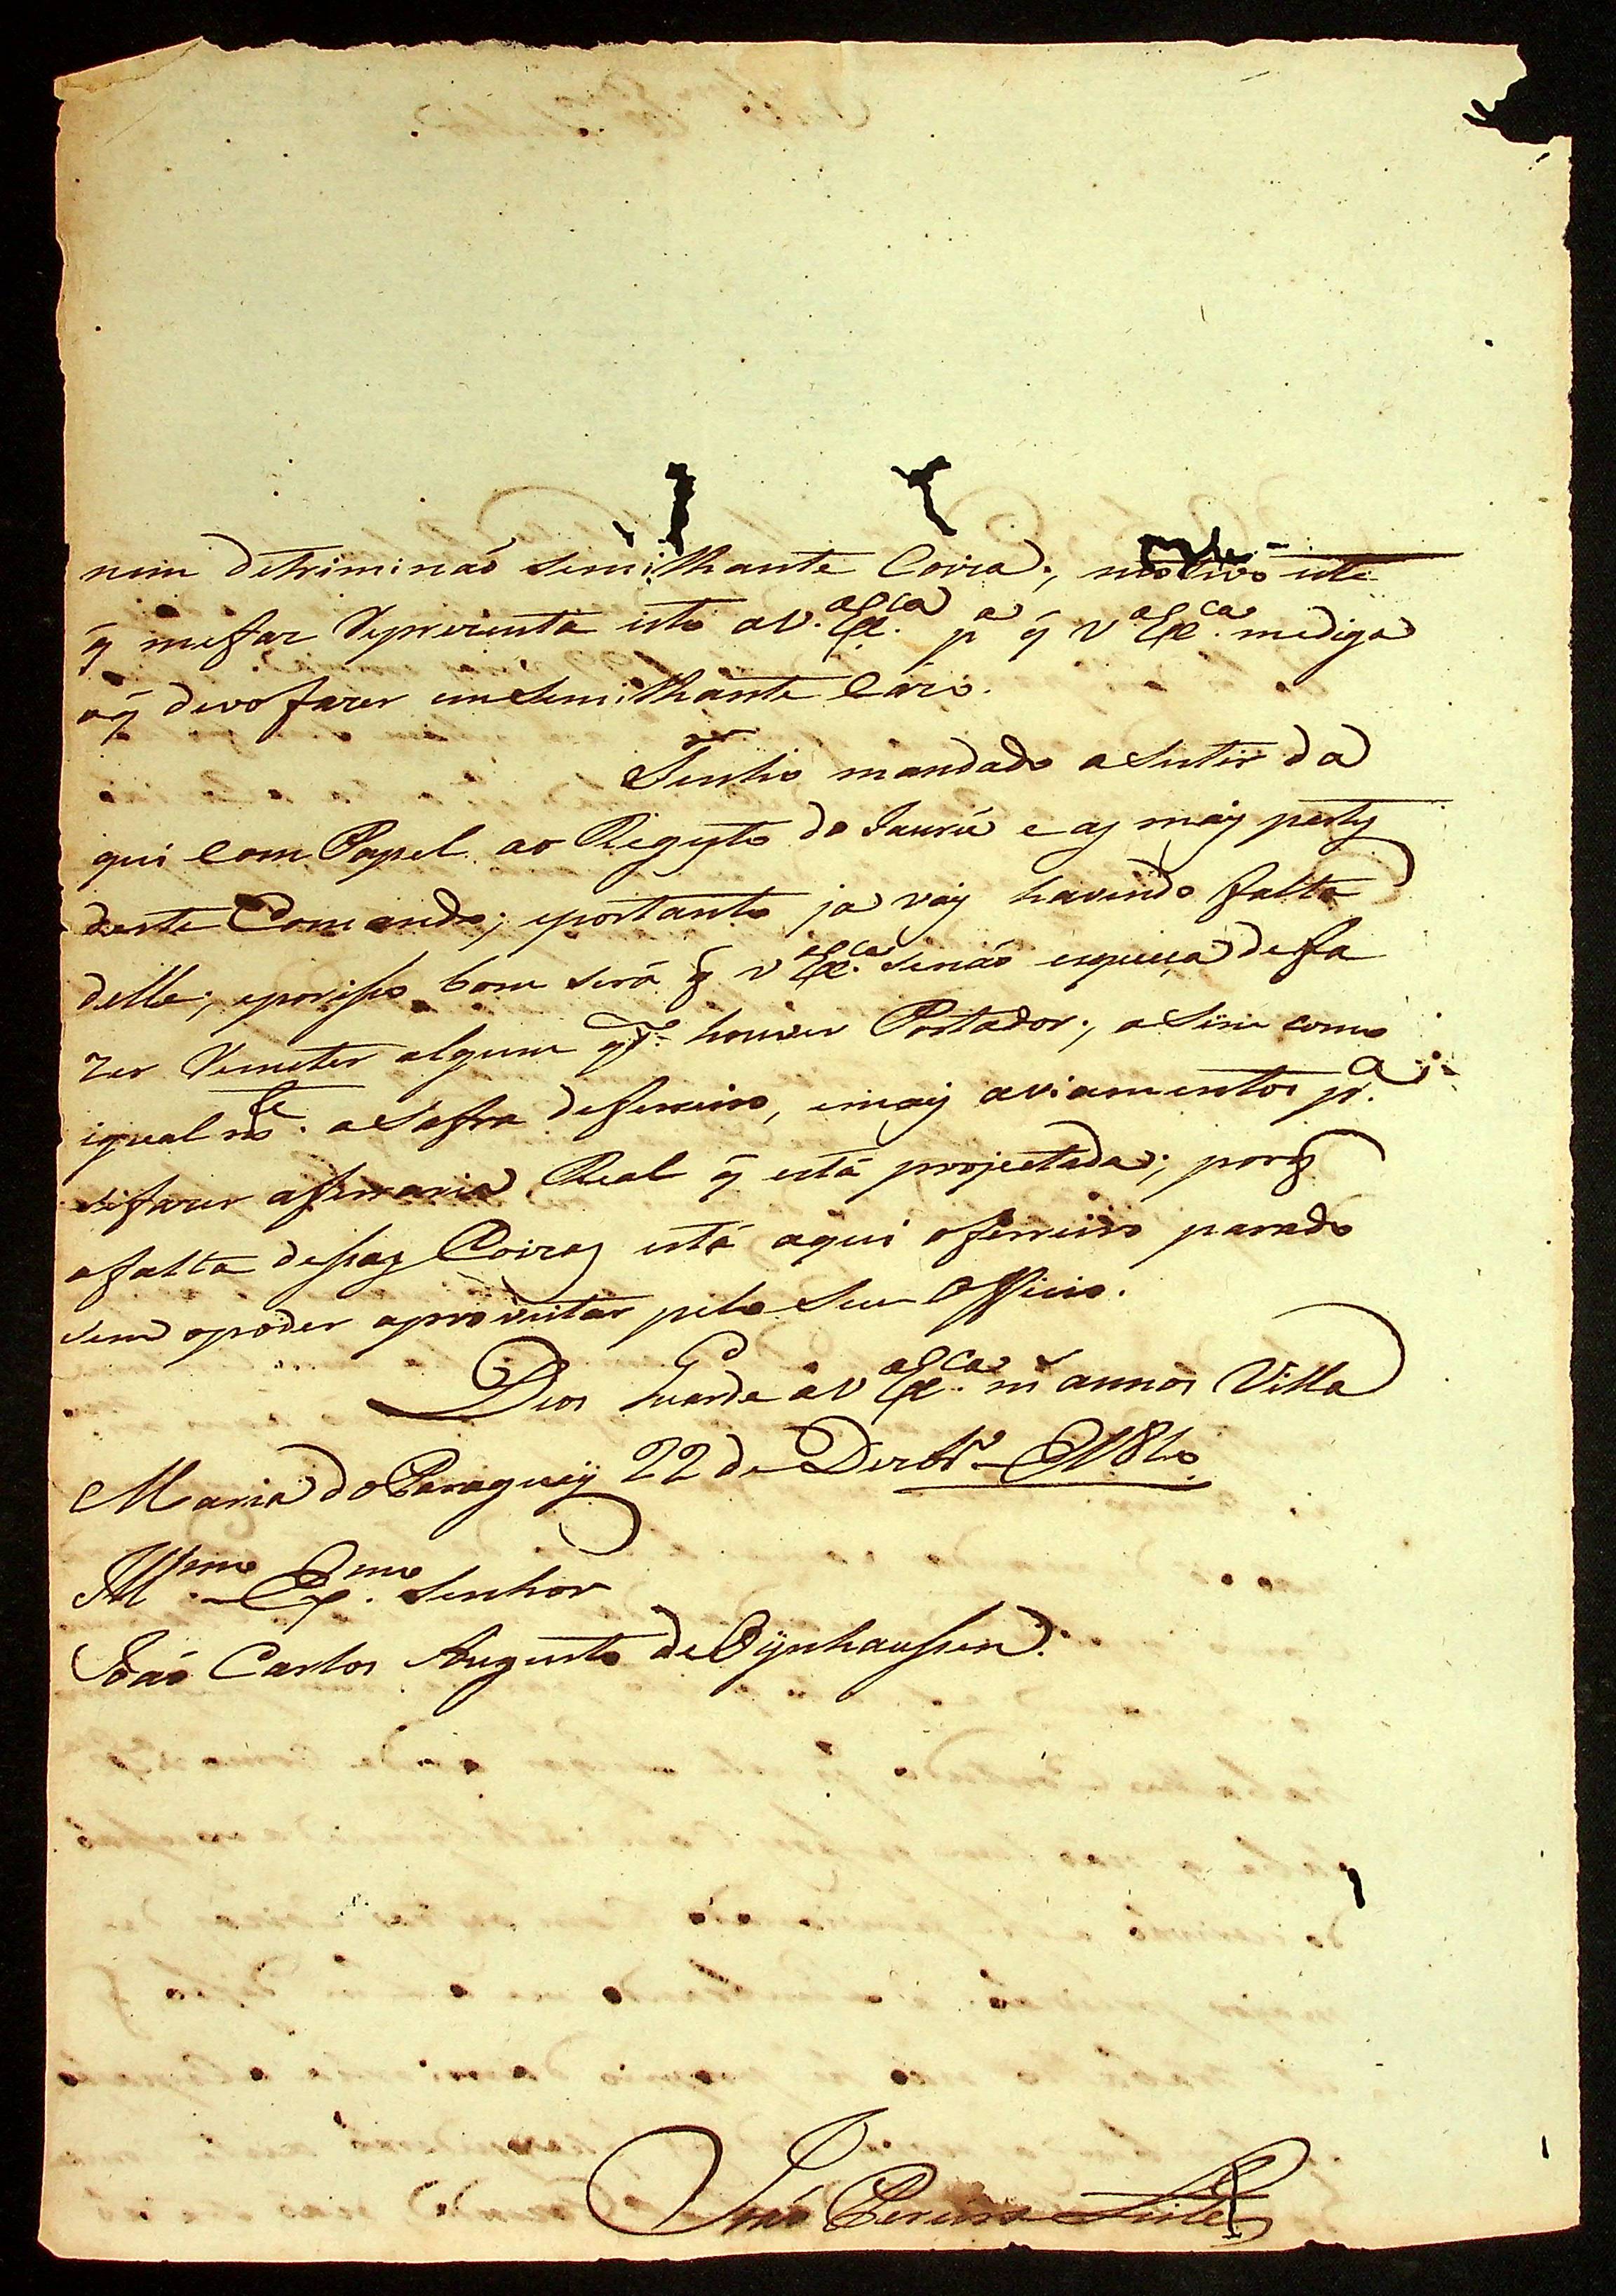 nem detriminaó semilhante Coiza; motivo este
q̃ mefaz Reprezentá isto aV.ª Ex.ca p.ª q̃ V.ª Ex.ca mediga
oq̃ devo fazer em Semilhante Cazo.
Tenho mandado aSutir da
qui com Papel ao Regysto do Jaurú e as mais partes
deste Comando; eportanto ja vay havendo falta
delle; eporiso bom será q̃ V.ª Ex.ca senaó esqueça defa
zer Remeter algum q.do houver Portador; aSim como
igualm.te aSafra deferreiro, emais aviamentos p.ª
sifazer aferraria Real q̃ está projectada; porq̃
afalta desas Coizas está aqui oferreiro parado
sem opoder aproveitar pelo Seu Officio.
Deos Guarde aV.ª Ex.ca m.s annos Villa
Maria do Paraguay 22 de Dezbr.º 181
Ill.mo Ex.mo Senhor
Joaó Carlos Augusto de Oÿnhausen.
Joaó Pereira Leite